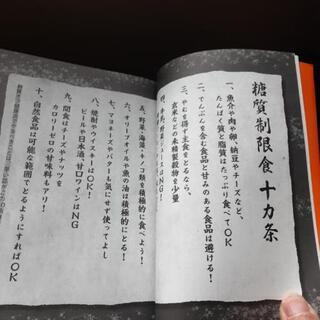 糖質制限食十カ条
一、魚介や肉や卵、納豆やチーズなど、
たんぱく質と脂質はたっぷり食べてOK
二、でんぷんを含む食品と甘みのある食品は避ける！
三、やむを得ず主食をとるなら、
玄米などの未精製穀物を少量
四、牛乳、野菜ジュースはNG！
五、野菜・海藻・キノコ類を積極的に食べよう！
六、オリーブオイルや魚の油は積極的にとる！
七、マヨネーズやバターも気にせず使ってよし
八、焼酎やウイスキーはOK！
ビールや日本酒、甘口ワインはNG
九、間食はチーズやナッツを
カロリーゼロの甘味料もアリ！
十、自然食品は可能な範囲でとるようにすればOK